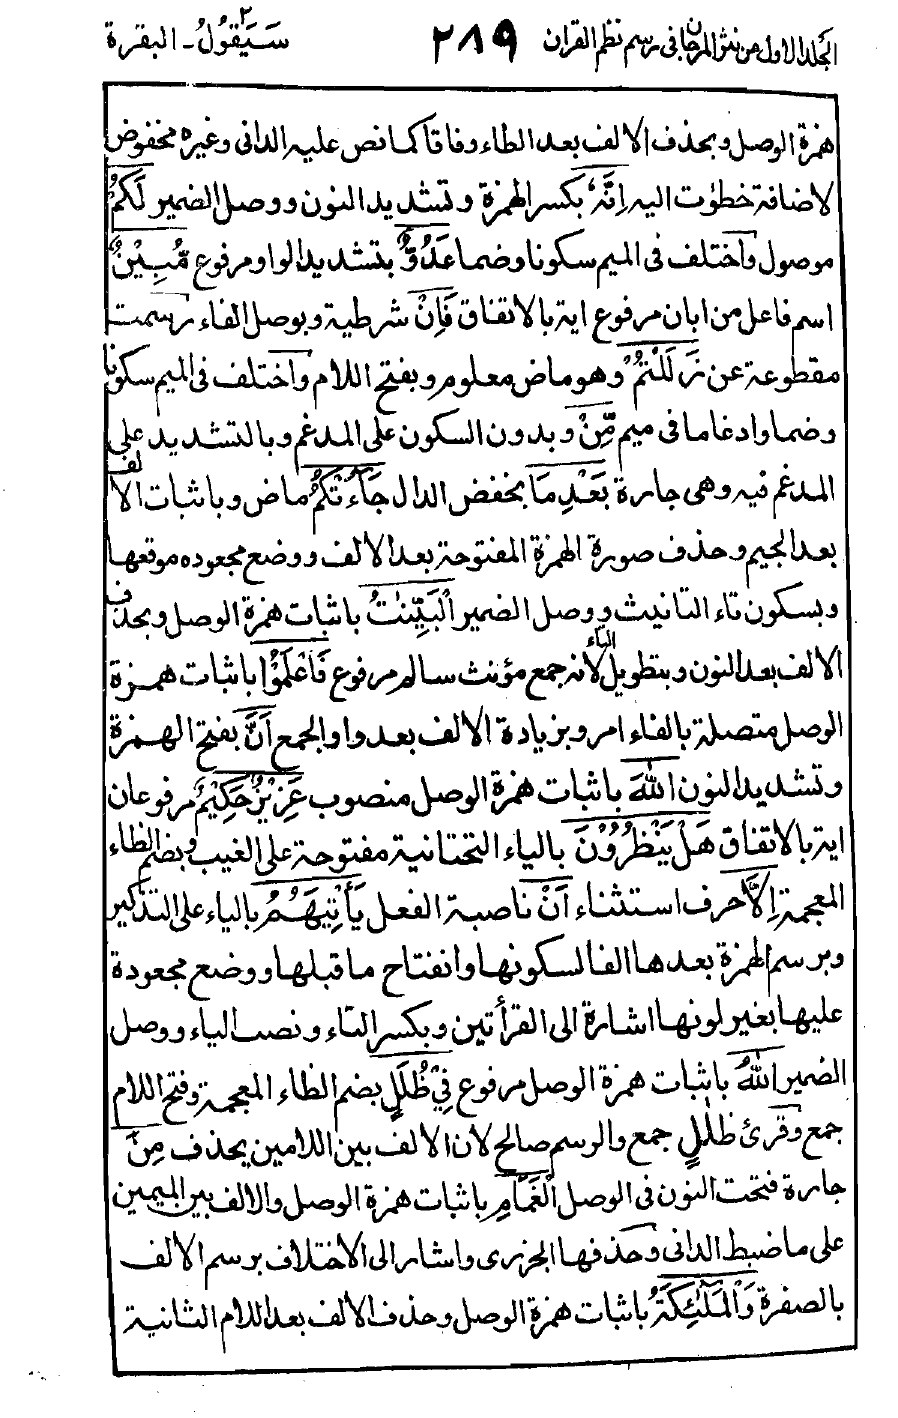 الجلد الاول من نثر المرجان فى رسم نظم القران ٢٨٩ سَيَقُولُ ٢ - البقرة
همزة الوصل وبحذف الالف بعد الطاء وفاقا كما نص عليه الدانى وغيره مخفوض
لاضافة خطوٰت اليه اِنَّهٗ بكسر الهمزة وتشديد النون ووصل الضمير لَكُمْ
موصول واختلف فى الميم سكونا وضما عَدُوٌّ بتشديد الواو مرفوع مُّبِيْنٌ
اسم فاعل من ابان مرفوع اية بالاتفاق فَاِنْ شرطية وبوصل الفاء رسمت
مقطوعة عن زَلَلْتُمْ وهو ماض معلوم وبفتح اللام واختلف فى الميم سكونا
وضما وادغاما فى ميم مِّنْ وبدون السكون على المدغم وبالتشديد على
المدغم فيه وهى جارة بَعْدِ مَا بخفض الدال جَآءَتْكُمُ ماض وباثبات الالف
بعد الجيم وحذف صورة الهمزة المفتوحة بعد الالف ووضع مجعوده موقعها
وبسكون تاء التانيث ووصل الضمير الْبَيِّنٰتُ باثبات همزة الوصل وبحذف
الالف بعد النون وبتطويل التاء لانه جمع مؤنث سالم مرفوع فَاعْلَمُوْا باثبات همزة
الوصل متصلة بالفاء امر وبزيادة الالف بعد واو الجمع اَنَّ بفتح الهمزة
وتشديد النون اللّٰهَ باثبات همزة الوصل منصوب عَزِيْزٌ حَكِيْمٌ مرفوعان
اية بالاتفاق هَلْ يَنْظُرُوْنَ بالياء التحتانية مفتوحة على الغيب وبضم الظاء
المعجمة اِلَّا حرف استثناء اَنْ ناصبة الفعل يَأْتِيَهُمُ بالياء على التذكير
وبرسم الهمزة بعدها الفا لسكونها وانفتاح ما قبلها ووضع مجعودة
عليها بغير لونها اشارة الى القرأتين وبكسر التاء ونصب الياء ووصل
الضمير اللّٰهُ باثبات همزة الوصل مرفوع فِيْ ظُلَلٍ بضم الظاء المعجمة وفتح اللام
جمع وقرئ ظلٰلٍ جمع والرسم صالح لان الالف بين اللامين يحذف مِنَ
جارة فتحت النون فى الوصل الْغَمَامِ باثبات همزة الوصل والالف بين الميمين
على ما ضبط الدانى وحذفها الجزرى واشار الى الاختلاف برسم الالف
بالصفرة وَالْمَلٰٓئِكَةُ باثبات همزة الوصل وحذف الالف بعد اللام الثانية